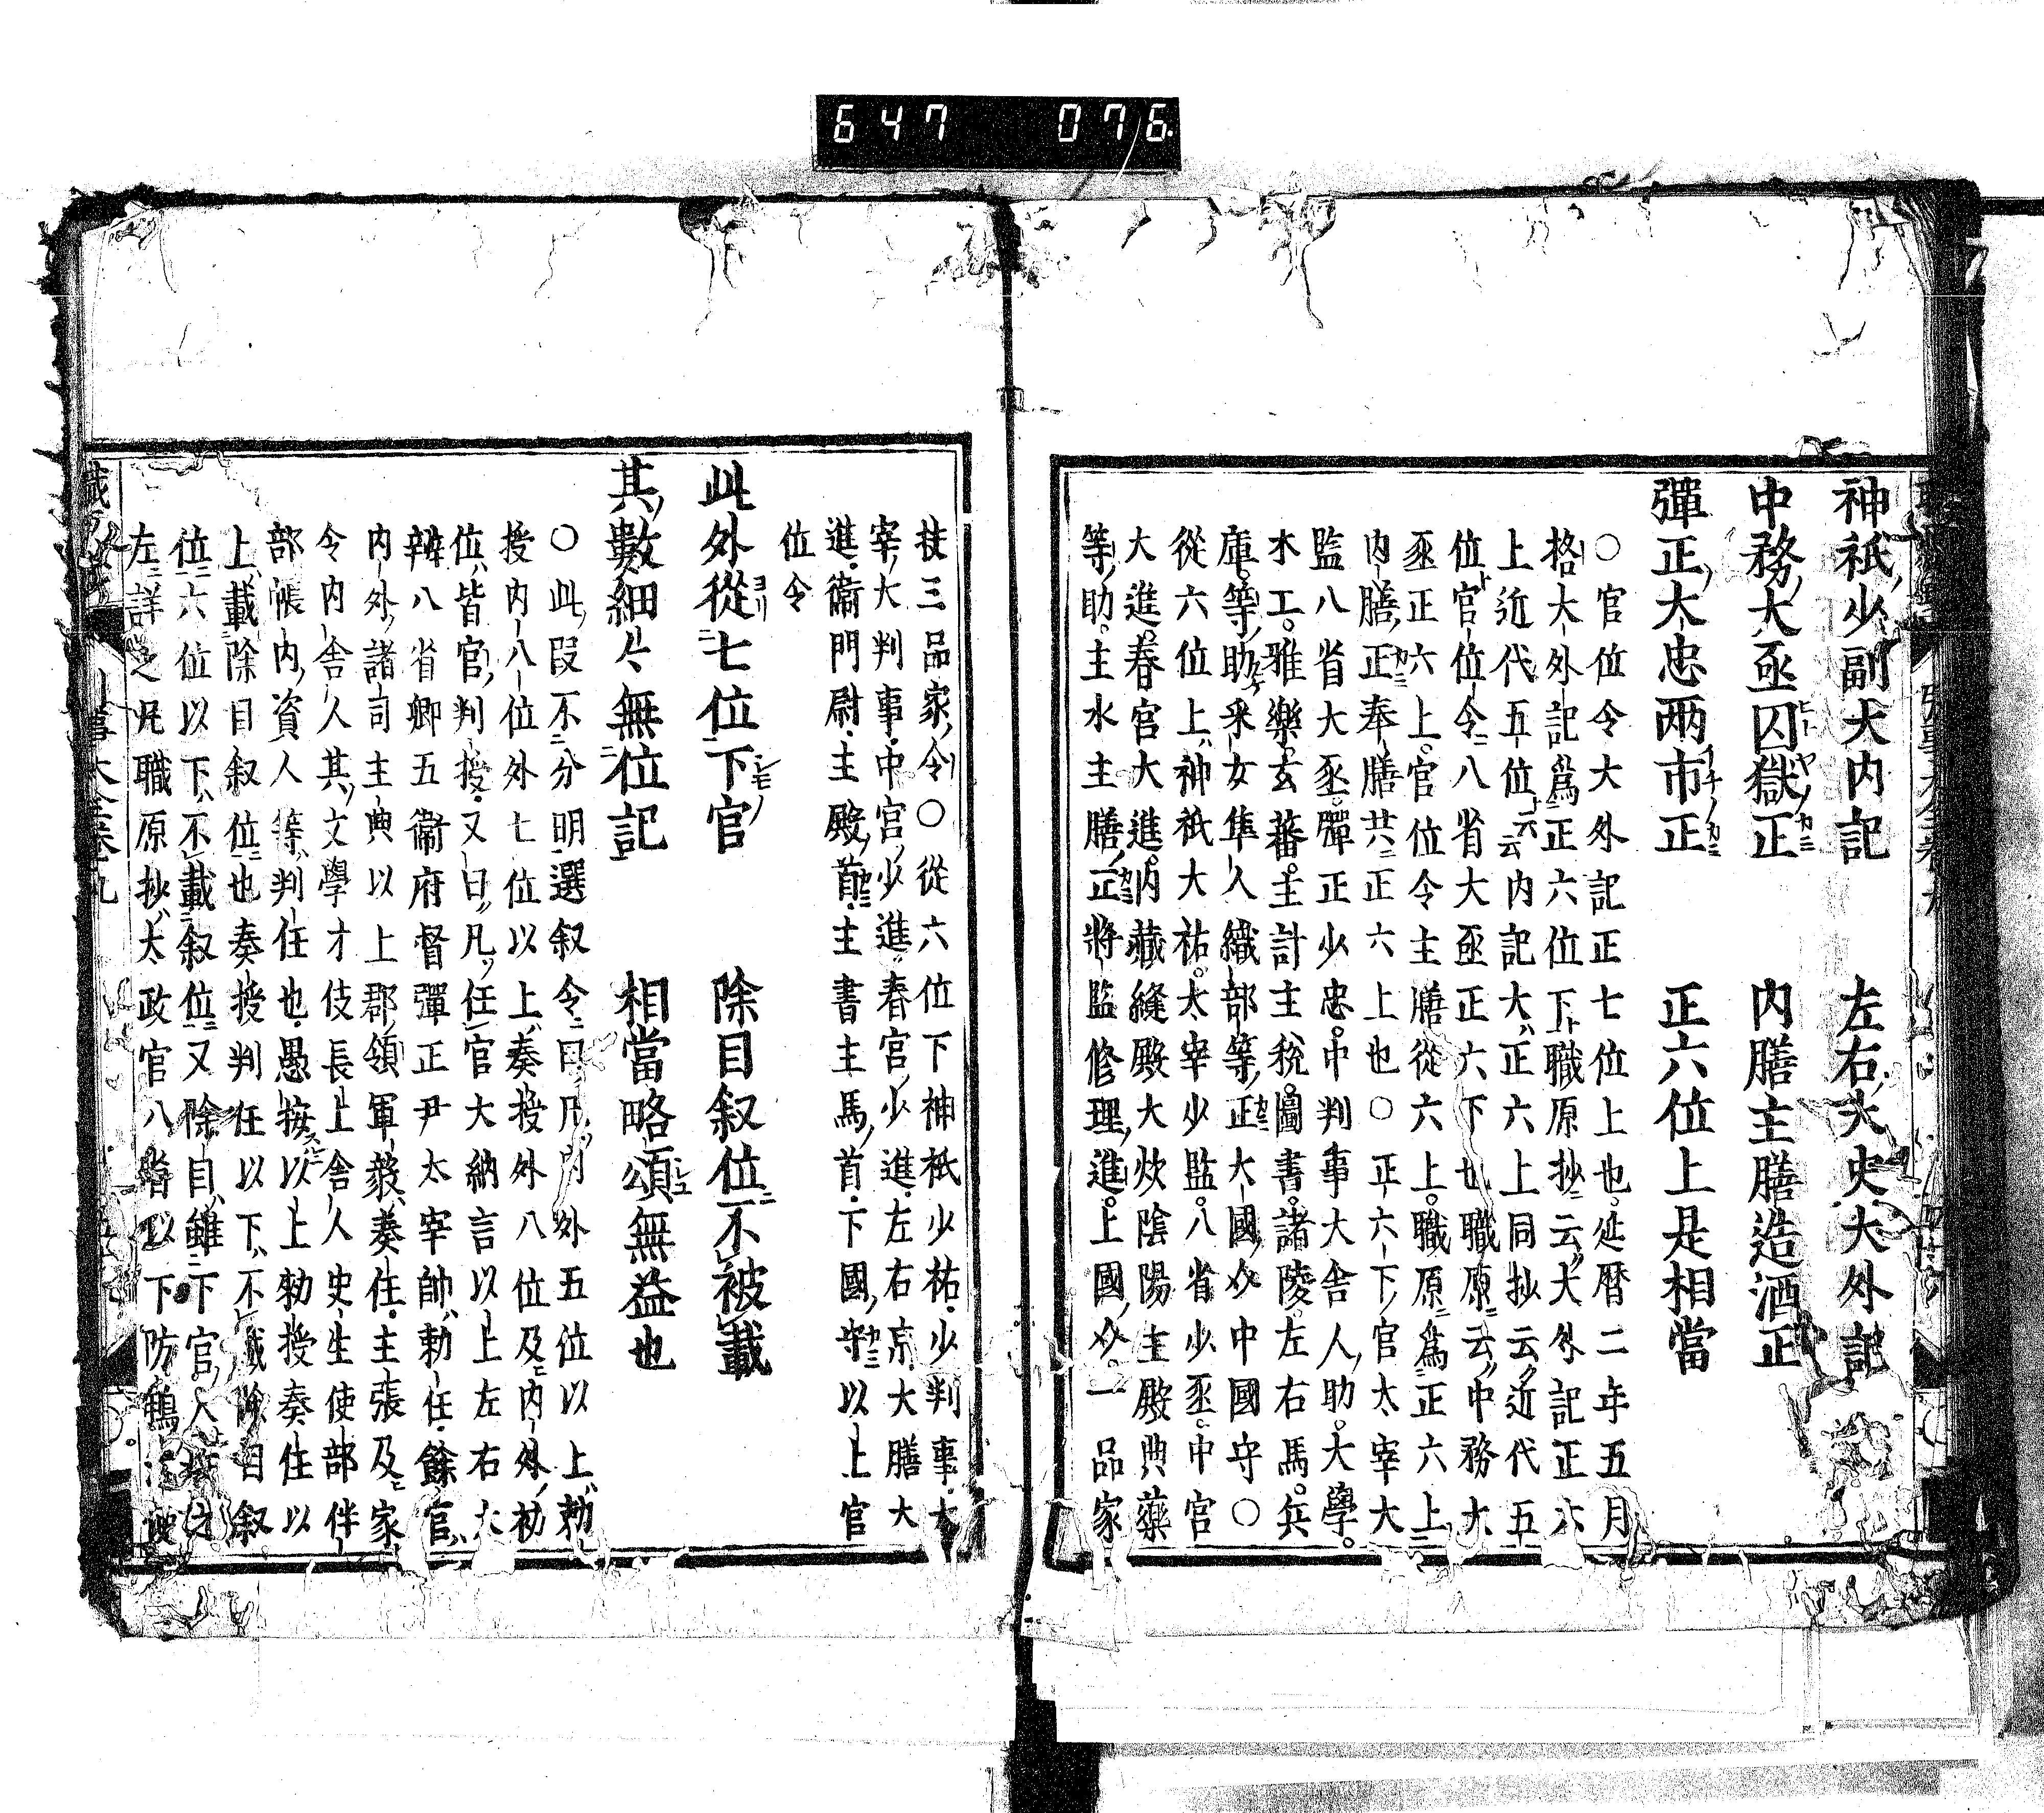 647 076
神祇少副大内記 左右大史大外記
中務大丞囚獄正 内膳主膳造酒正
彈正大忠兩市正 正六位上是相當
○官位令大外記正七位上也。延暦二年五月
格大外記爲正六位下職原抄云大外記正六
上近代五位云云内記大正六上同抄云近代五
位官位令八省大丞正六下也職原云中務大
丞正六上。官位令主膳從六上。職原爲正六上
内膳正奉膳共正六上也○正六下官太宰大
監八省大丞。彈正少忠。中判事大舍人助。大學。
木工。雅樂。玄蕃。主計主税。圖書。諸陵。左右馬。兵
庫。等助采女隼人織部等正大國介中國守○
從六位上神祇大祐。太宰少監。八省少丞。中宮
大進。春宮大進。内藏縫殿大炊陰陽主殿典藥
等助。主水主膳正將監修理進。上國介。一品家
扶三品家令○從六位下神祇少祐少判事大
宰大判事中宮少進春宮少進左右京大膳大
進衞門尉主殿首主書主馬首下國守以上官
位令
此外從七位下官 除目叙位不被載
其數細々無位記 相當略頌無益也
○此段不分明選叙令曰凡内外五位以上勅
授内八位外七位以上奏授外八位及内外初
位皆官判授又曰凡任官大納言以上左右大
辨八省卿五衞府督彈正尹太宰帥勅任餘官
内外諸司主典以上郡領軍毅奏任主張及家
令内舍人其文學才伎長上舍人史生使部伴
部帳内資人等判任也愚按以上勅授奏任以
上載除目叙位也奏授判任以下不載除目叙
位六位以下不載叙位又除目雖下官
左詳之凡職原抄太政官八省以下防鴨河